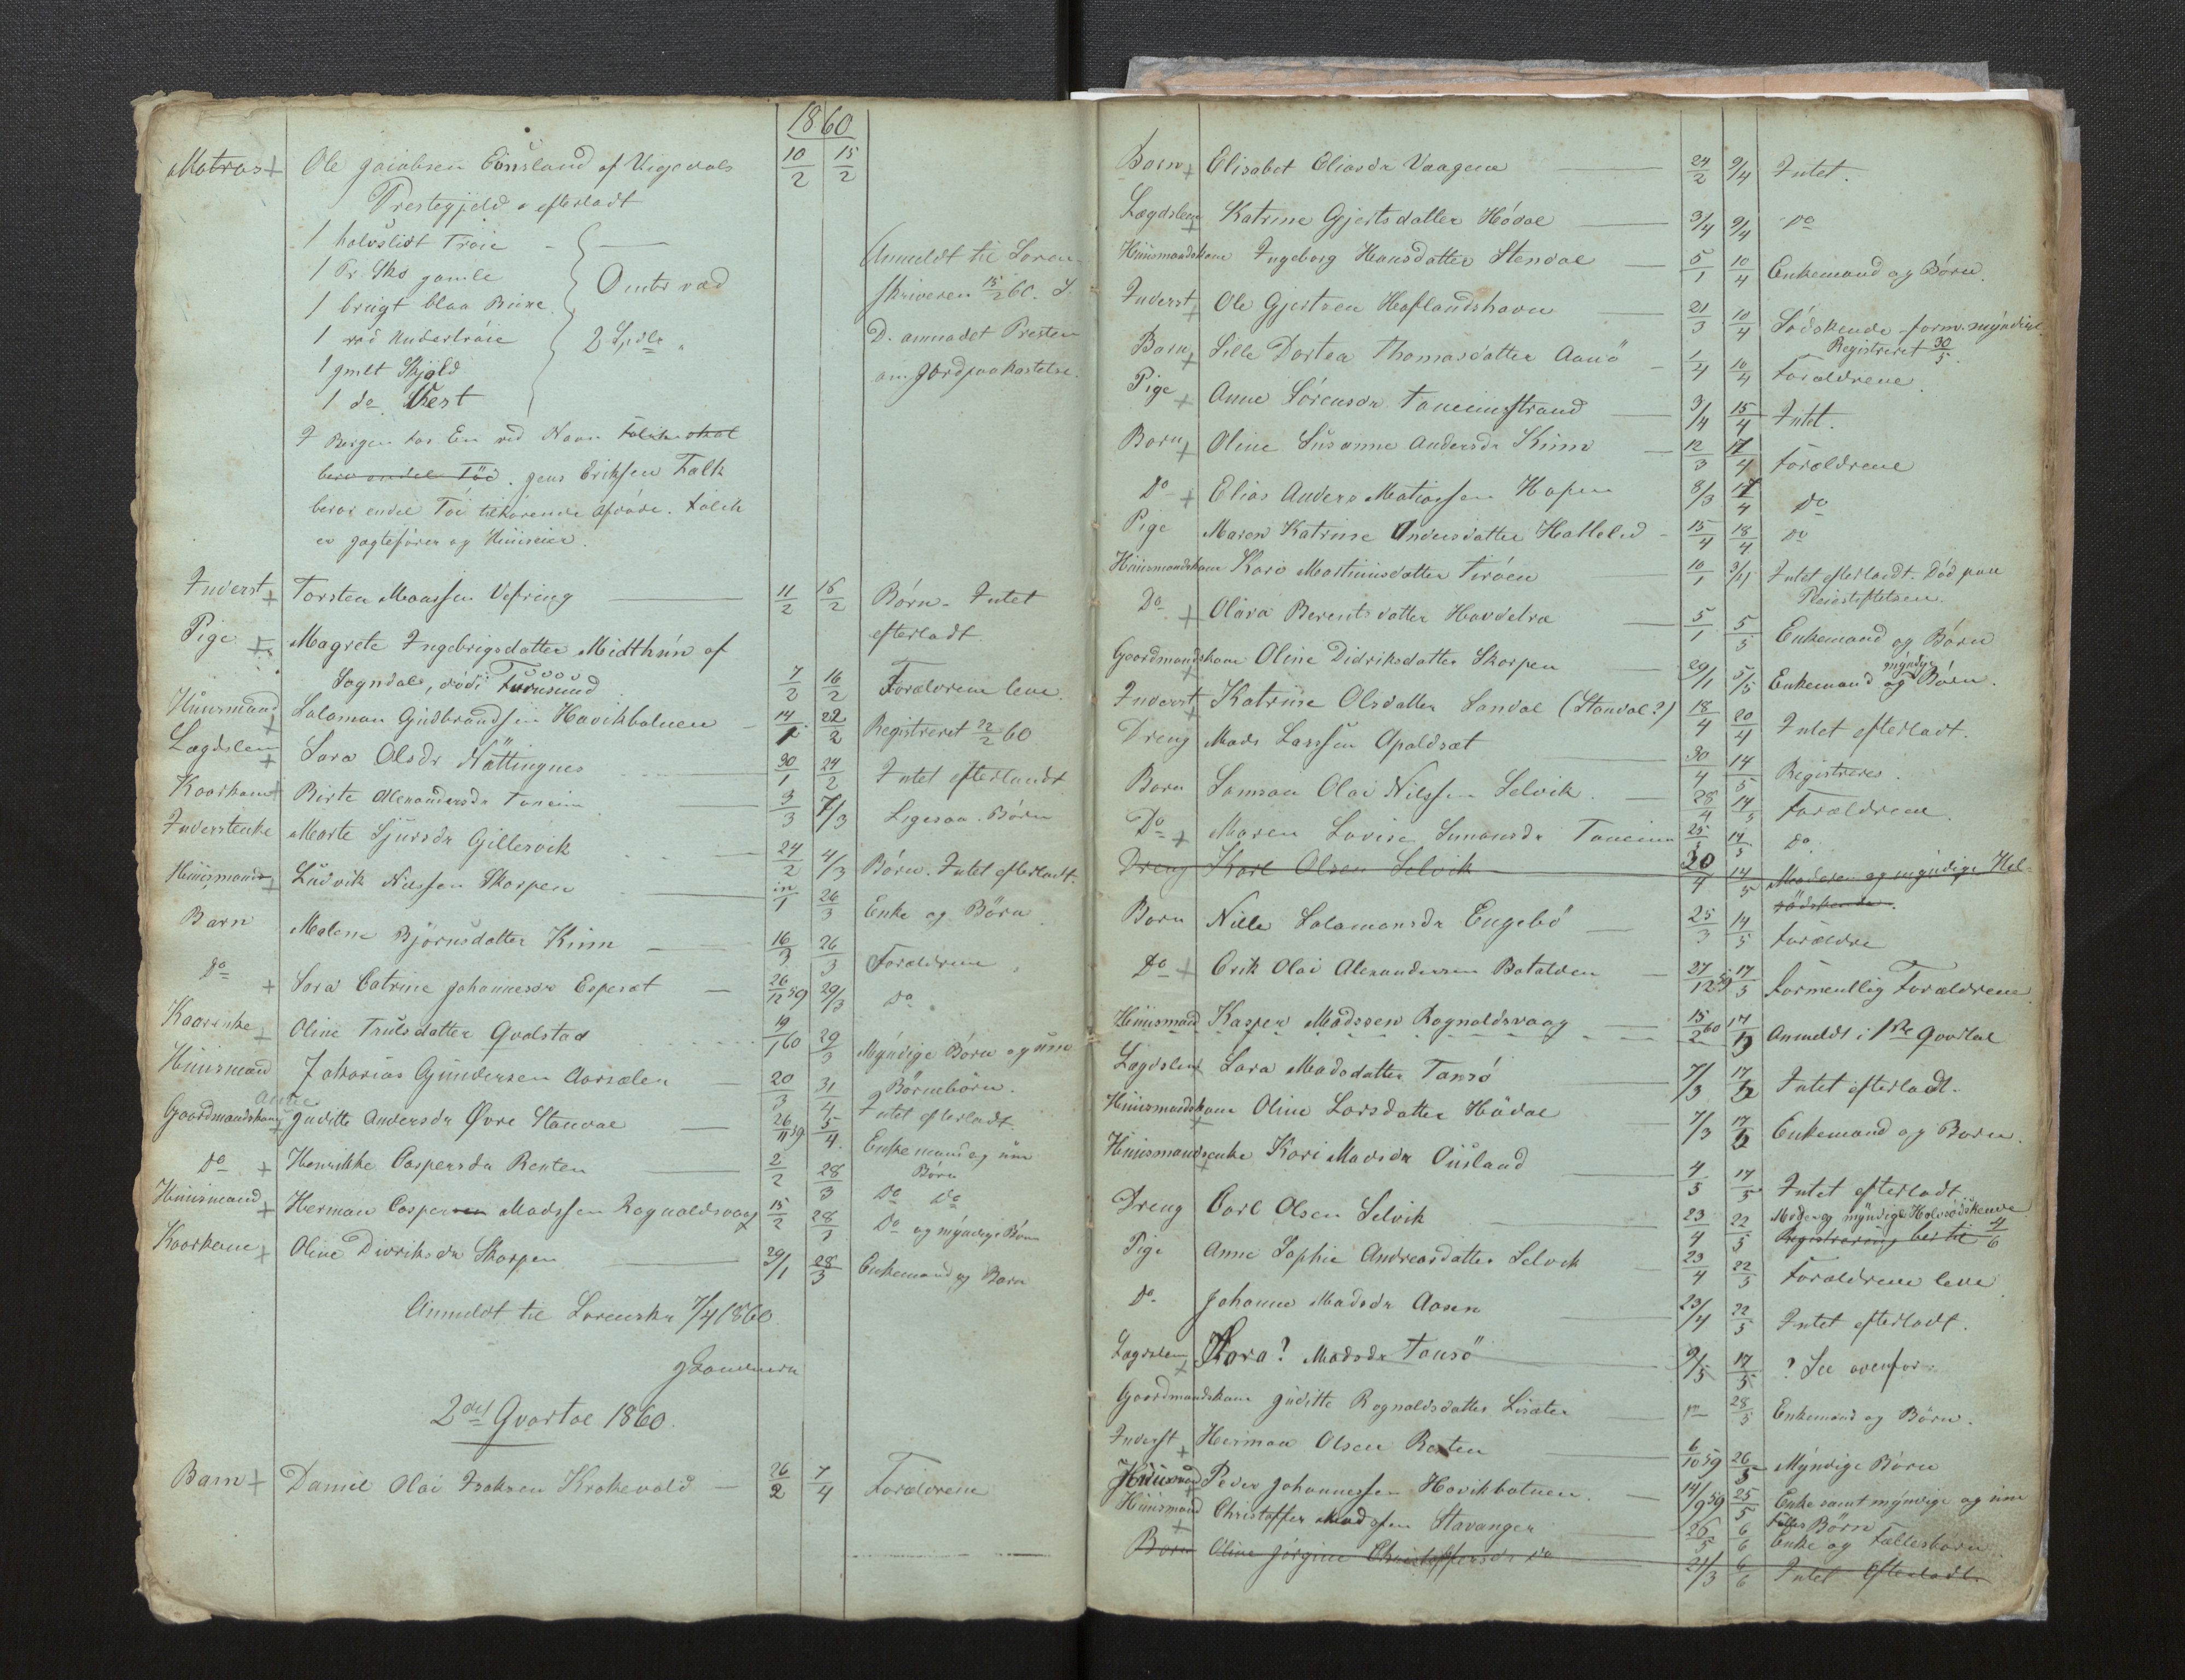 1860
Matros + Ole Jacobsen Einsland af 10/2 15/2
Prestegjeld. efterladt
1 halvslidt Trøie
1 Pr. Sko gamle
1 brugt blaa Buxe
1 rød Undertrøie
1 gmlt Skjold
1 do. Vest
Omtr. væd
2 Spdlr.
Anmeldt til Soren-
skriveren 15/2 60. S.
D. anmodet Presten
om Jordpaakastelse.
I Bergen har En ved Navn
Jens Eriksen Falk
beror endel Töi tilhörende Afdöde. Falck
er Jagtefører og Huuseier.
Inderst + Torsten Monssen Vefring 11/2 16/2 Börn. Intet
efterladt
Pige + Magrete Ingebrigsdatter Midthun af
Sogndal, död i Furusund 7/2 16/2 Forældrene leve.
Huusmand + Salamon Gudbrandssen Havikbotnen 14/2 22/2 Registreret 22/2 60
Lægdslem + Sara Olsdr Nättingnes 30/1 24/2 Intet efterladt
Kaarkone + Birte Alexandersdr Tonein 3/3 7/3 Ligesaa. Börn
Inderstenke Marte Sjursdr Gillesvik 24/2 4/3 Börn. Intet efterladt.
Huusmand + Ludvik Nilssen Skorpen 1 26/3 Enke og Börn
Barn Malene Bjørnsdatter Kinn 16/3 26/3 Forældrene
Do + Sara Catrine Johannesdr Espeset 26/12 59 29/3 Do
Kaarenke + Oline Trulsdatter Qvalstad 19/1 60 29/3 Myndige Börn og um
Börnebörn.
Huusmand Zakarias Gundersen Aarsælen 20/3 31/4 Intet efterladt.
Anne
Gaardmandskone + Juditte Andersdr Øvre Standal 26/11 59 5/4 Enkemand og um
Börn
Do + Henrikke Caspersdr Rexten 2/2 28/3 Do Do
Huusmand + Herman Caspersen Madssen Rognaldsvaag 15/2 28/1 Do og myndige Börn
Kaarkone + Oline Didriksdr Skorpen 29/1 28/3 Enkemand og Barn
Anmeldt til Sorenskr 7/4 1860
2det Qvartal 1860.
Barn + Daniel Olai Isaksen Krokevold 26/2 7/4 Forældrene
Barn + Elisabet Eliasdr Vaagene 24/2 9/4 Intet.
Lægdslem + Katrine Gjertsdatter Hödal 3/4 9/4 Do
Huusmandskone Ingeborg Hansdatter Stendal 5/1 10/4 Enkemand og Börn.
Inderst + Ole Gjertsen Haflandshavn 21/3 10/4 Södskende - form. myndige.
Registreret 30/5.
Barn + Sille Dortea Thomasdatter Aanö 1/4 10/4 Forældrene.
Pige + Anne Sörensdr Toneimstrand 3/4 15/4 Intet.
Barn + Oline Susanne Andersdr Kinn 12/3 17/4 Forældrene
Do + Elias Anders Matiassen Hopen 8/3 17/4 Do
Pige Maren Katrine Andersdatter Hatleled 15/4 18/4 Do
Huusmandskone Kari Martinusdatter Tiröen 10/1 9/4 Intet efterladt. Död paa
Pleiestiftelsen.
Do + Olava Berentsdatter Hovdelva 5/1 5/5 Enkemand og Börn
Gaardmandskone Oline Didriksdatter Skorpen 29/1 5/5 Enkemand og myndige Börn.
Inderst + Katrine Olsdatter Sandal (Standal?) 18/4 20/4 Intet efterladt.
Dreng Mads Larssen Apaldset 30/4 14/5 Registreres.
Barn Samson Olai Nilssen Selvik 28/4 14/5 Forældrene.
Do + Maren Lovise Simonsdr Toneim 25/5 14/5 Do
Dreng Karl Olsen Selvik 20/4 14/5 Moderen og myndige Hel-
södskende.
Barn Nille Salamonsdr Engebö 25/3 14/5 Forældre
Do + Erik Olai Alexandersen Batalden 27/12 59 17/5 Formentlig Forældrene
Huusmand Kasper Madssen Rognaldsvaag 15/2 60 17/5 Anmeldt i 1ste Qvartal
Lægdslem Sara Madsdatter Tansö 7/3 17/5 Intet efterladt.
Huusmandskone + Oline Larsdatter Hödal 7/3 17/5 Enkemand og Barn.
Huusmandsenke + Kari Madsdr Ousland 4/5 17/5 Intet efterladt
Dreng Carl Olsen Selvik 23/4 22/5 Moder og myndige Halvsödskende
Registrering ber. til 4/6
Pige Anne Sophie Andreasdatter Selvik 23/4 22/5 Forældrene leve
Do Johanne Madsdr Aasen 23/4 22/5 Intet efterladt.
Lægdslem + Sara? Madsdr Tansö 9/5 17/5 ? See ovenfor.
Gaardmandskone Juditte Rognaldsdatter Lisæter 28/5 Enkemand og Börn.
Inderst + Herman Olsen Rexten 6/10 59 26/5 Myndige Börn
Huusmand + Peder Johannessen Havikbotnen 14/9 59 25/5 Enke samt myndige og um
Fælles Börn
Huusmand + Christoffer Madssen Stavanger 26/5 6/6 Enke og Fællesbörn
Barn Oline Jörgine Christoffersdr Do 21/3 6/6 Intet Efterladt.